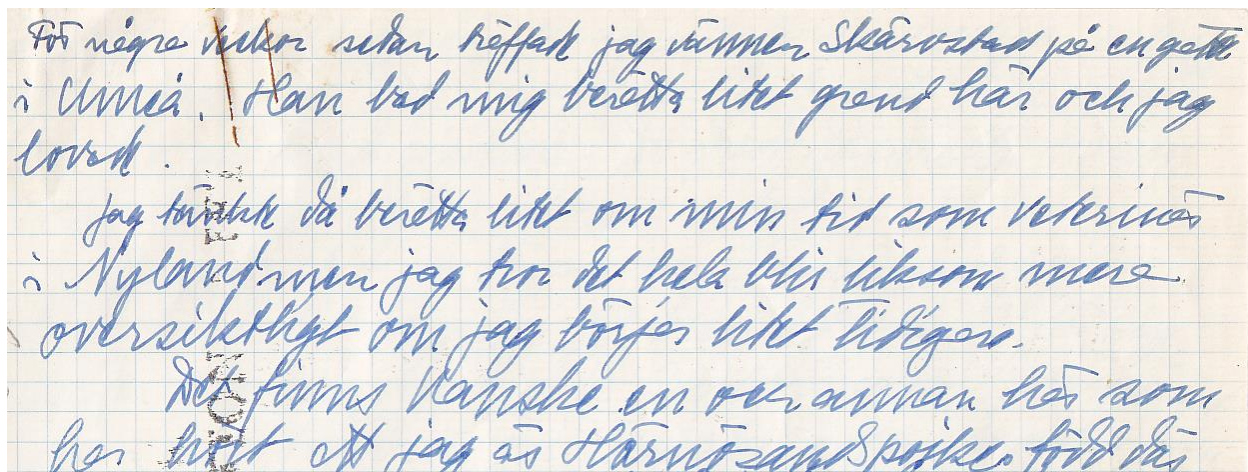 För några veckor sedan träffade jag vännen Skärvstad på en gata
i Umeå. Han bad mig berätta litet grand här och jag
lovade.
Jag tänkte då berätta litet om min tid som veterinär
i Nyland men jag tror det hela blir liksom mera
översiktligt om jag börjar litet tidigare.
Det finns kanske en och annan här som
har hört att jag är Härnösandspojke född där